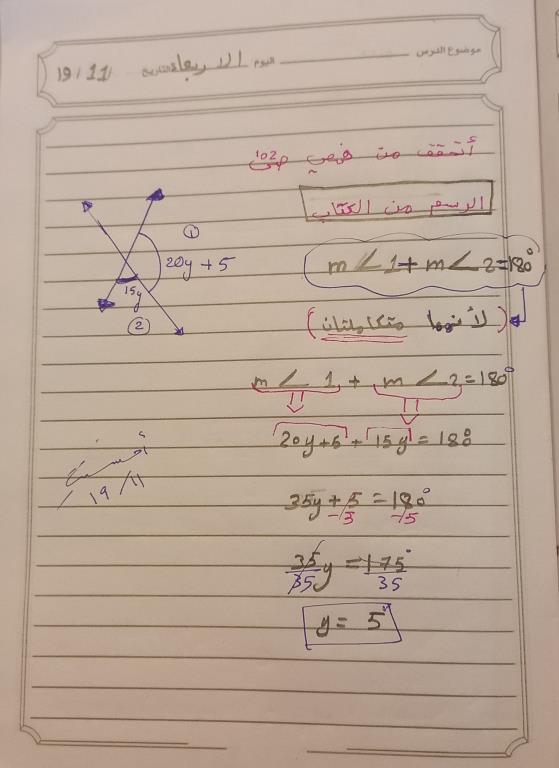 موضوع الدرس اليوم الاربعاء التاريخ 19 / 11 /
أتحقق من فهمي ص 102
الرسم من الكتاب
① 20y + 5
15y ②
m∠1 + m∠2 = 180°
(لأنهما متكاملتان)
m∠1 + m∠2 = 180°
20y+5 + 15y = 180°
35y + 5 = 180°
-5 -5
35y = 175°
35 35
y = 5°
أحسنت
19 / 11 /